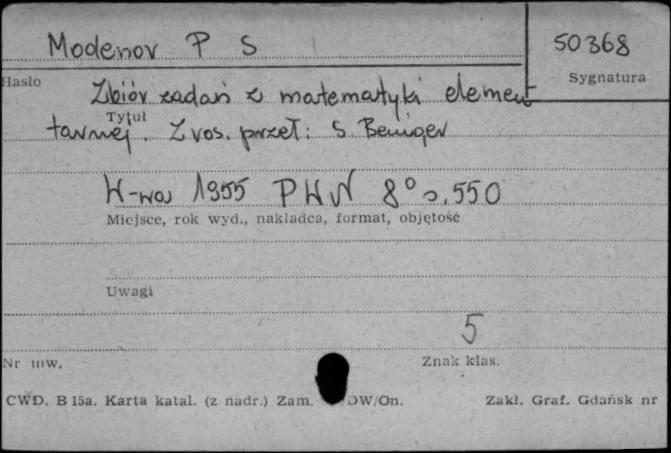 Modenov P S
50368
Hasło
Sygnatura
Zbiór zadań z matematyki elemen
Tytuł
tarnej. Z ros. przeł: S. Beniger
W-wa 1955 PWN 8° s. 550
Miejsce, rok wyd., nakładca, format, objętość
Uwagi
5
Nr inw.
Znak klas.
CWD. B 15a. Karta katal. (z nadr.) Zam. DW/On.
Zakł. Graf. Gdańsk nr